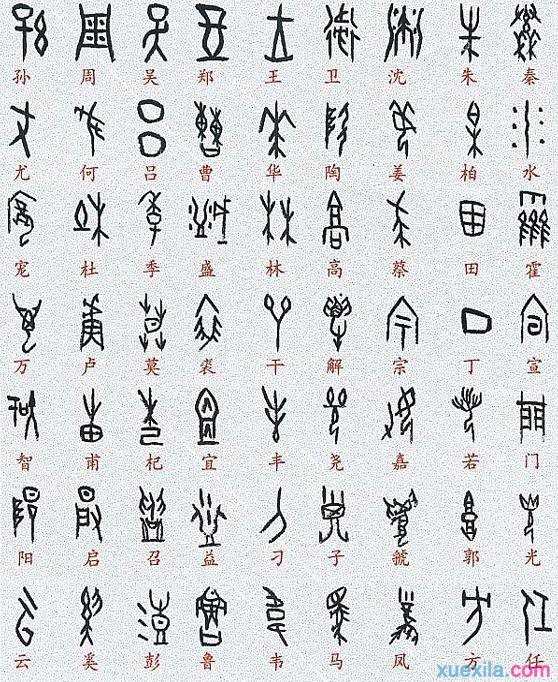 孙 周 吴 郑 王 卫 沈 朱 秦
尤 何 吕 曹 华 陶 姜 柏 水
宠 杜 季 盛 林 高 蔡 田 霍
万 卢 莫 裘 干 解 宗 丁 宣
智 甫 杞 宜 丰 尧 嘉 若 门
阳 启 召 益 刁 子 虢 郭 光
云 奚 彭 鲁 韦 马 凤 方 任
xuexila.com